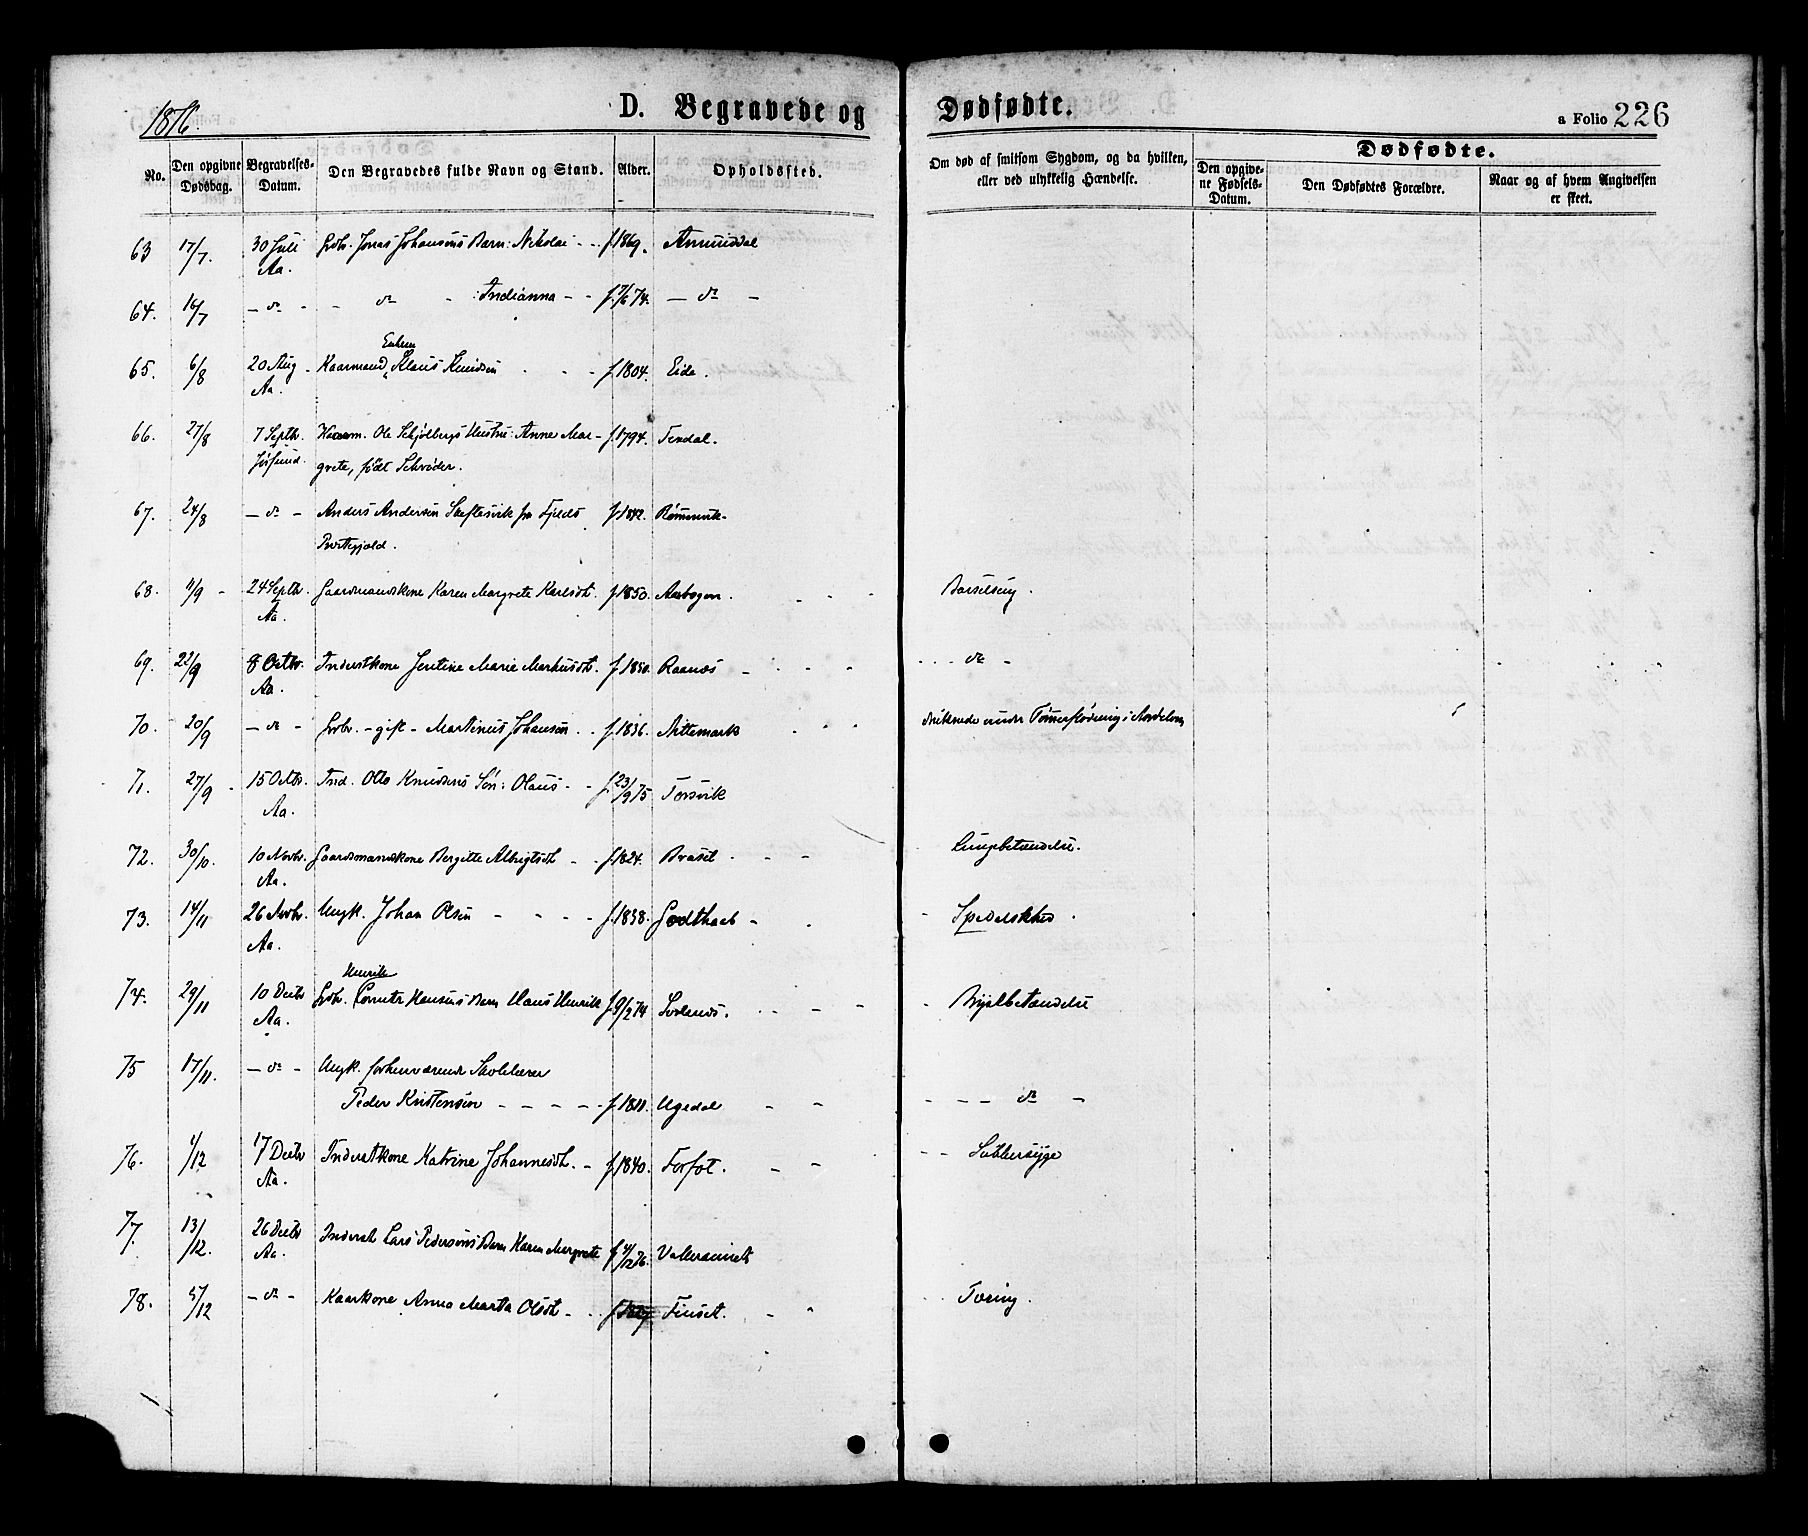 1876.
D. Begravede og Dødfødte.
a Folio 226
No.
Den opgivne Dødsdag.
Begravelses-Datum.
Den Begravedes fulde Navn og Stand.
Alder.
Opholdsfted.
Om død af smitsom Sygdom, og da hvilken, eller ved ulykkelig Hændelse.
Dødfødte.
Den opgivene Fødsels-Datum.
Den Dødfødtes Forældre.
Naar og af hvem Angivelsen er skeet.
63 17/7. 30 Juli Indr. Jonas Johansens Barn: Nikolai - - f. 1869.
Aa.
64. 16/7 - do - - do - : Indianna - - - do -
Enkem
65. 6/8 20 Aug - Kaarmand, Klaus Knudsen - - f. 1804. Eide.
Aa.
66. 27/8 7 Septbr. Kaarm. Ole Schjølbergs Hustru: Anne Mar- f. 1794. Terdal.
Jøssund. grete, født Schrøder.
67. 24/8 - do - Anders Andersen fra Fjelds f. 1842.
Prestegjeld.
68. 11/9 - 24 Septbr. Gaardmandskone Karen Margrete Karlsdt. f. 1850. Barselseng.
Aa.
69. 22/9 8 Octbr. Inderstkone Jentine Marie Markusdt. f. 1850. Raanæs - - do -
Aa.
70. 20/9 - do - Indr. - gift - Martinus Johansen - f. 1836. Aittemark - druknede under Tømmerflødning i Nordelven
71. 27/9 - 15 Octbr. Ind. Otto Knudsens Søn: Olaus - - f. 23/9 75 Torsvik
Aa.
72. 30/10. 10 Novbr. Gaardmandskone Bergitte Albrigtsdt - - f. 1824. Braset - Lungebetændelse.
Aa.
73. 14/11 26 Novbr. Ungk. Johan Olsen - - - f. 1838. Godthaab - Spedalskhed.
Aa.
Henrik
74. 29/11 10 Decbr Hansens Barn Hans Henrik f. 9/2 74 Brystbetændelse
Aa.
75 17/11. - do - Ungk. forhenværende Skolelærer
Peder Kristensen - - - - - f. 1811. Ugedal - - - - - do -
76. 1/12 17 Decbr Inderstkone Katrine Johannesdt. - f. 1840. Forfot. - - - -
Aa.
77. 13/12. 26 Decbr Inderst Lars Pedersens Barn Karen Margrete f. 4/12 76.
Aa.
78. 5/12 - do - Kaarkone Anna Marta Olsdt - - Finset. - Tæring.